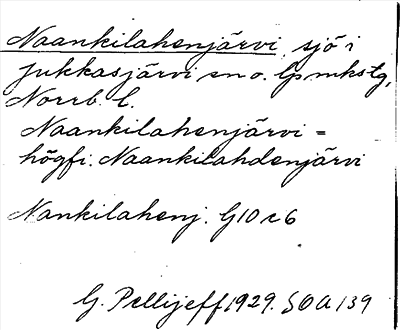 Naankilahenjärvi, sjö i
Jukkasjärvi sn o. lpmkstg,
Norrb. l.
Naankilahenjärvi =
högfi. Naankilahdenjärvi
Nankilahenj. G10 c6
G. Pellijeff 1929. SOA 139